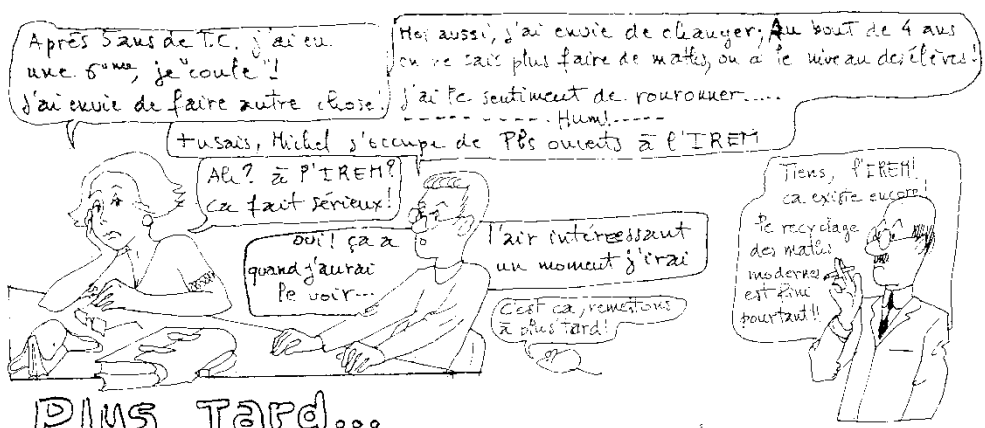 Après 5 ans de T.C. j'ai eu
une 6ème, je "coule"!
J'ai envie de faire autre chose!
Moi aussi, j'ai envie de changer; Au bout de 4 ans
on ne sait plus faire de maths, on a le niveau des élèves!
J'ai le sentiment de ronronner.....
- - - - - - - - - . Hum! - - - - -
tu sais, Michel s'occupe de Pbs ouverts à l'IREM
Ah? à l'IREM?
ça fait sérieux!
oui! ça a l'air intéressant
quand j'aurai un moment j'irai
le voir...
C'est ça, remettons
à plus tard!
Tiens, l'IREM!
ça existe encore!
le recyclage
des maths
modernes
est fini
pourtant!!
Plus Tard...